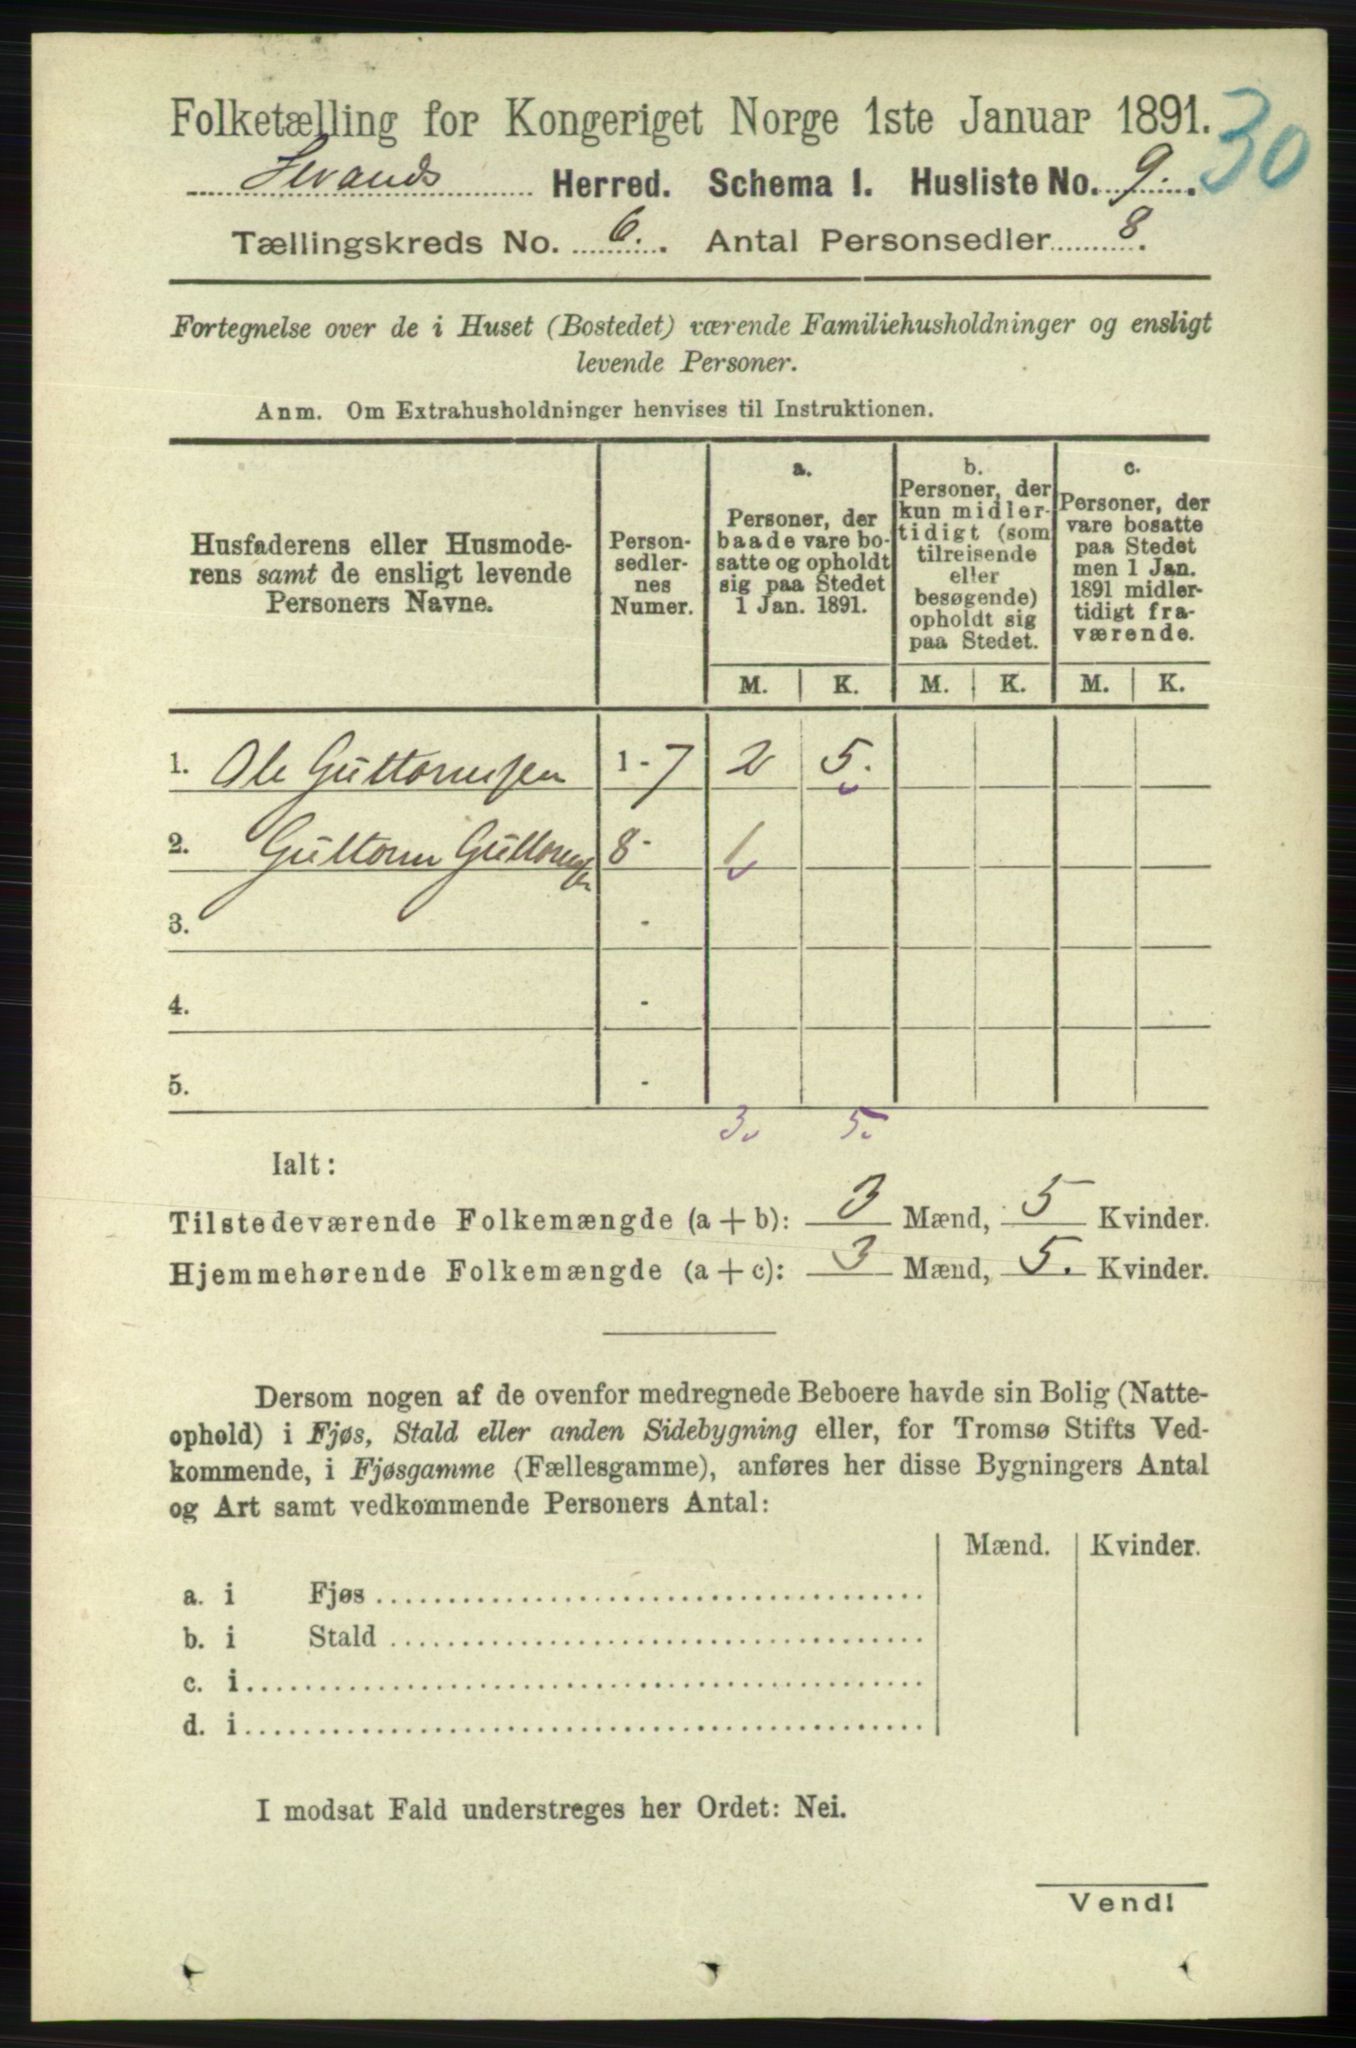 Folketælling for Kongeriget Norge 1ste Januar 1891.
30
Herred. Schema I. Husliste No. 9.
Tællingskreds No. 6. Antal Personsedler 8.
Fortegnelse over de i Huset (Bostedet) værende Familiehusholdninger og ensligt
levende Personer.
Anm. Om Extrahusholdninger henvises til Instruktionen.
Husfaderens eller Husmode-
rens samt de ensligt levende
Personers Navne.
Person-
sedler-
nes
Numer.
a.
Personer, der
baade vare bo-
satte og opholdt
sig paa Stedet
1 Jan. 1891.
b.
Personer, der
kun midler-
tidigt (som
tilreisende
eller
besøgende)
opholdt sig
paa Stedet.
c.
Personer, der
vare bosatte
paa Stedet
men 1 Jan.
1891 midler-
tidigt fra-
værende.
M. K. M. K. M. K.
1. Ole Guttormsen 1 - 7 2 5.
2. Guttorm Guttormsen 8 - 1
3. -
4. -
5. -
3. 5.
Ialt:
Tilstedeværende Folkemængde (a + b): 3 Mænd, 5 Kvinder.
Hjemmehørende Folkemængde (a + c): 3 Mænd, 5. Kvinder.
Dersom nogen af de ovenfor medregnede Beboere havde sin Bolig (Natte-
ophold) i Fjøs, Stald eller anden Sidebygning eller, for Tromsø Stifts Ved-
kommende, i Fjøsgamme (Fællesgamme), anføres her disse Bygningers Antal
og Art samt vedkommende Personers Antal:
Mænd. Kvinder.
a. i Fjøs
b. i Stald
c. i
d. i
I modsat Fald understreges her Ordet: Nei.
Vend!